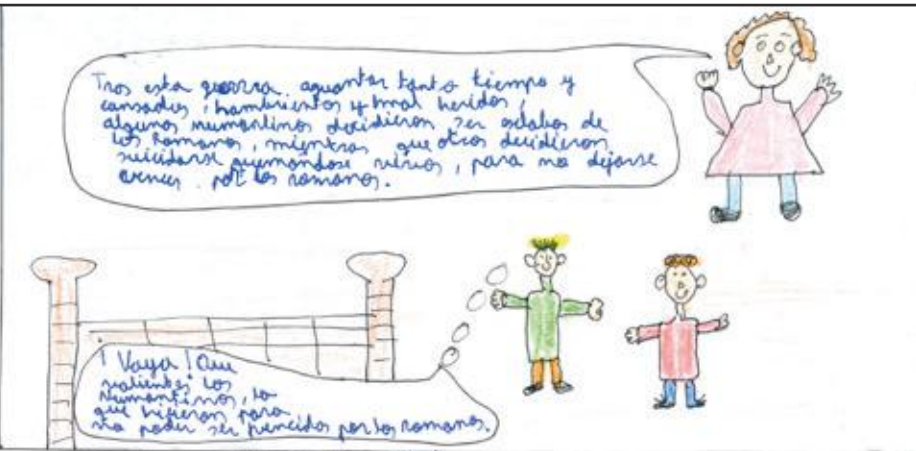 Tras esta guerra, aguantar tanto tiempo y
cansados, hambrientos y mal heridos,
algunos numantinos decidieron ser eslabos de
los Romanos, mientras que otros decidieron
suicidarse quemandose vivos, para no dejarse
vencer por los romanos.
¡Vaya! Que
valientes los
Numantinos, lo
que hicieron para
no poder ser vencidos por los romanos.